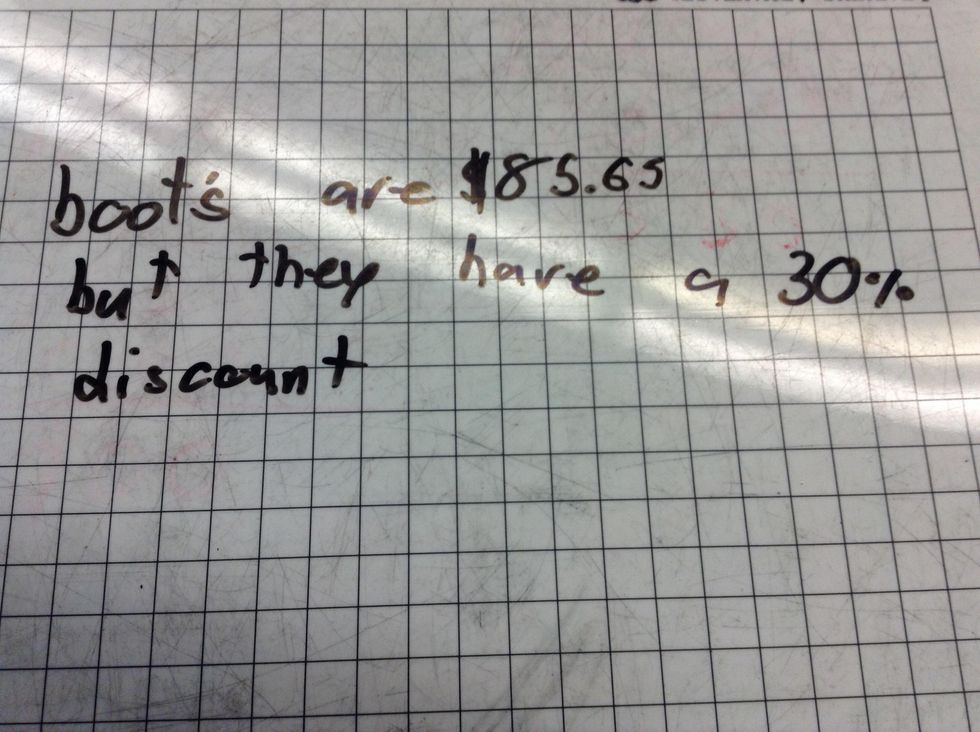 boot's are $85.65
but they have a 30%
discount